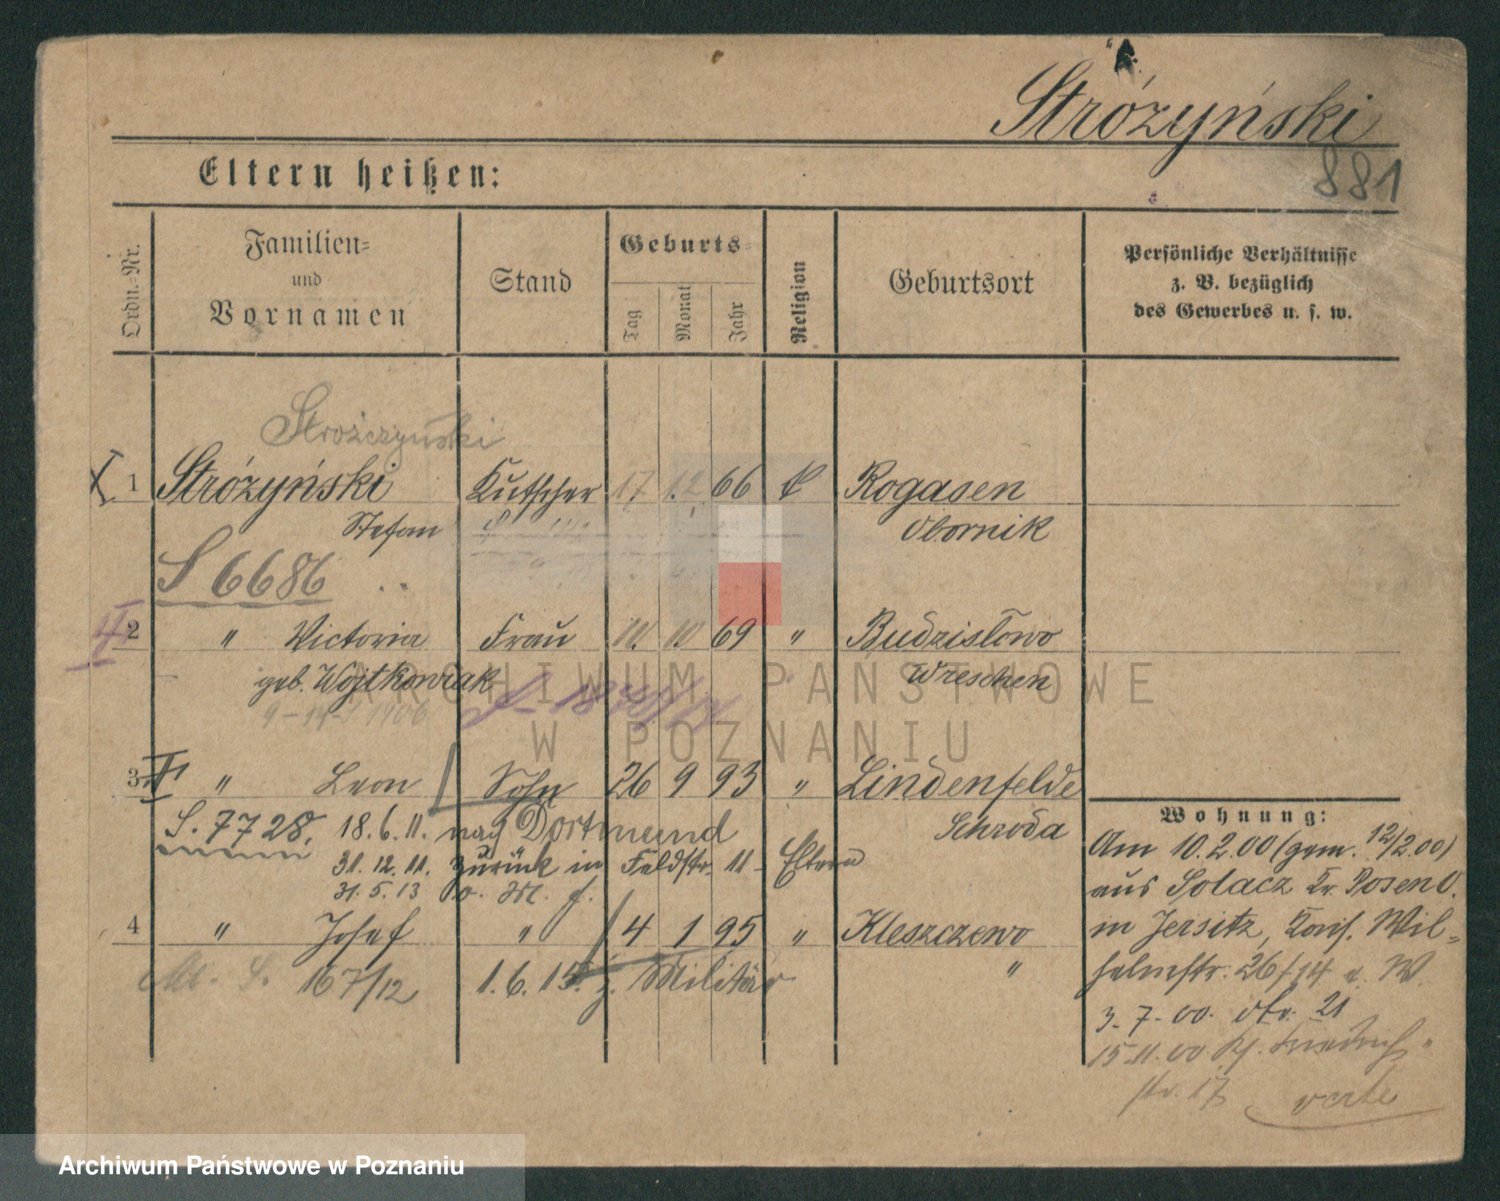 Stróżyński
881
Eltern heißen:
Ordn.-Nr.
Familien-
und
Vornamen
Stand
Geburts-
Tag
Monat
Jahr
Religion
Geburtsort
Persönliche Verhältnisse
z. B. bezüglich
des Gewerbes u. s. w.
Strożczyński
1 Stróżyński Kutscher 17 12 66 k Rogasen
Stefan Obornik
S 6686
II
2 " Victoria Frau 10. 10. 69 " Budzislowo
geb. Wojtkowiak Wreschen
3 " Leon Sohn 26 9 93 " Lindenfelde
Schroda
S. 7728. 18.6.11. nach Dortmund
31.12.11. zurück in Feldstr. 11 Eltern
31.5.13
4 " Josef " 4 1 95 " Kleszczewo
"
167/12 1.6.15. z. Militär
Wohnung:
Am 10.2.00 (gem. 12/2.00)
aus Solacz Kr. Posen O.
in Jersitz, Kais. Wil-
helmstr. 26/14 u. W.
3.-7.-00. 21
15.11.00 Friedrich-
str. 17 verte
ARCHIWUM PAŃSTWOWE
W POZNANIU
Archiwum Państwowe w Poznaniu